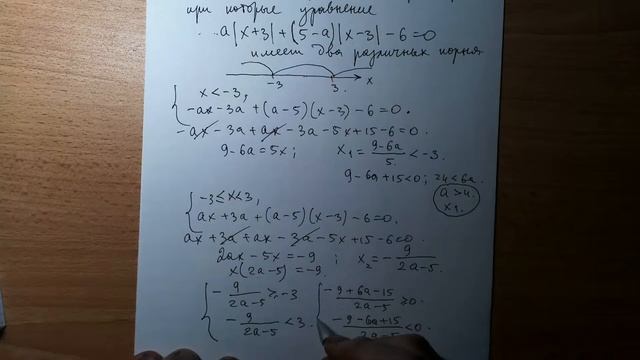 при которые уравнение
a|x+3| + (5-a)|x-3| - 6 = 0
имеет два различных корня
-3 3 x
x < -3,
-ax - 3a + (a-5)(x-3) - 6 = 0.
-ax - 3a + ax - 3a - 5x + 15 - 6 = 0.
9 - 6a = 5x; x₁ = (9-6a)/5 < -3.
9 - 6a + 15 < 0; 24 < 6a.
a > 4.
x₁.
-3 ≤ x < 3,
ax + 3a + (a-5)(x-3) - 6 = 0.
ax + 3a + ax - 3a - 5x + 15 - 6 = 0.
2ax - 5x = -9; x₂ = - 9/(2a-5)
x(2a-5) = -9.
- 9/(2a-5) ≥ -3 (-9+6a-15)/(2a-5) ≥ 0.
- 9/(2a-5) < 3. (-9-6a+15)/(2a-5) < 0.